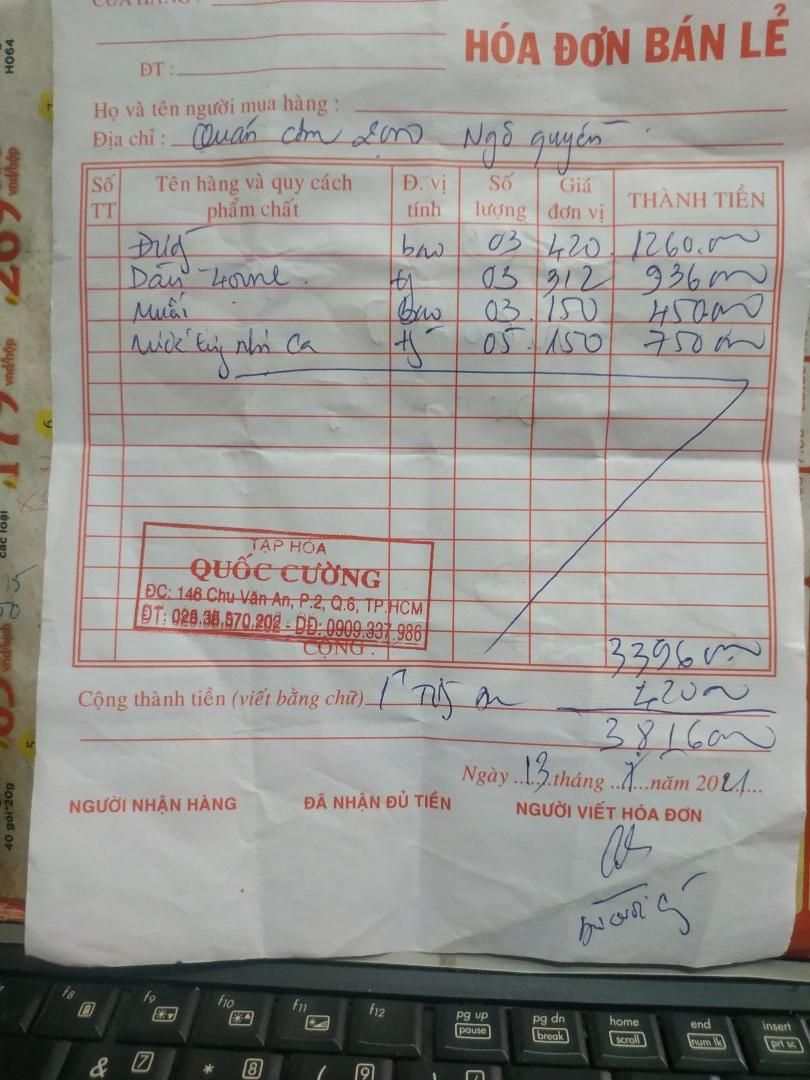 HÓA ĐƠN BÁN LẺ
ĐT :
Họ và tên người mua hàng :
Địa chỉ : Quán cơm 2000 Ngô quyền
Số TT Tên hàng và quy cách phẩm chất Đ. vị tính Số lượng Giá đơn vị THÀNH TIỀN
bao 03 420 1260.000
Dầu 03 312 936000
Muối bao 03 150 450.000
05 150 750000
TẠP HÓA
QUỐC CƯỜNG
ĐC: 146 Chu Văn An, P.2, Q.6, TP.HCM
ĐT: - DĐ: 0909.337.986
CỘNG : 3396000
Cộng thành tiền (viết bằng chữ) 420000
3816000
Ngày 13 tháng 7 năm 2021
NGƯỜI NHẬN HÀNG ĐÃ NHẬN ĐỦ TIỀN NGƯỜI VIẾT HÓA ĐƠN
H064
269 vnđ/hộp
179 vnđ/hộp
các loại
40 gói*20g
f8 f9 f10 f11 f12 pg up pause pg dn break home scroll end num lk insert prt sc
& 7 * 8 ( 9